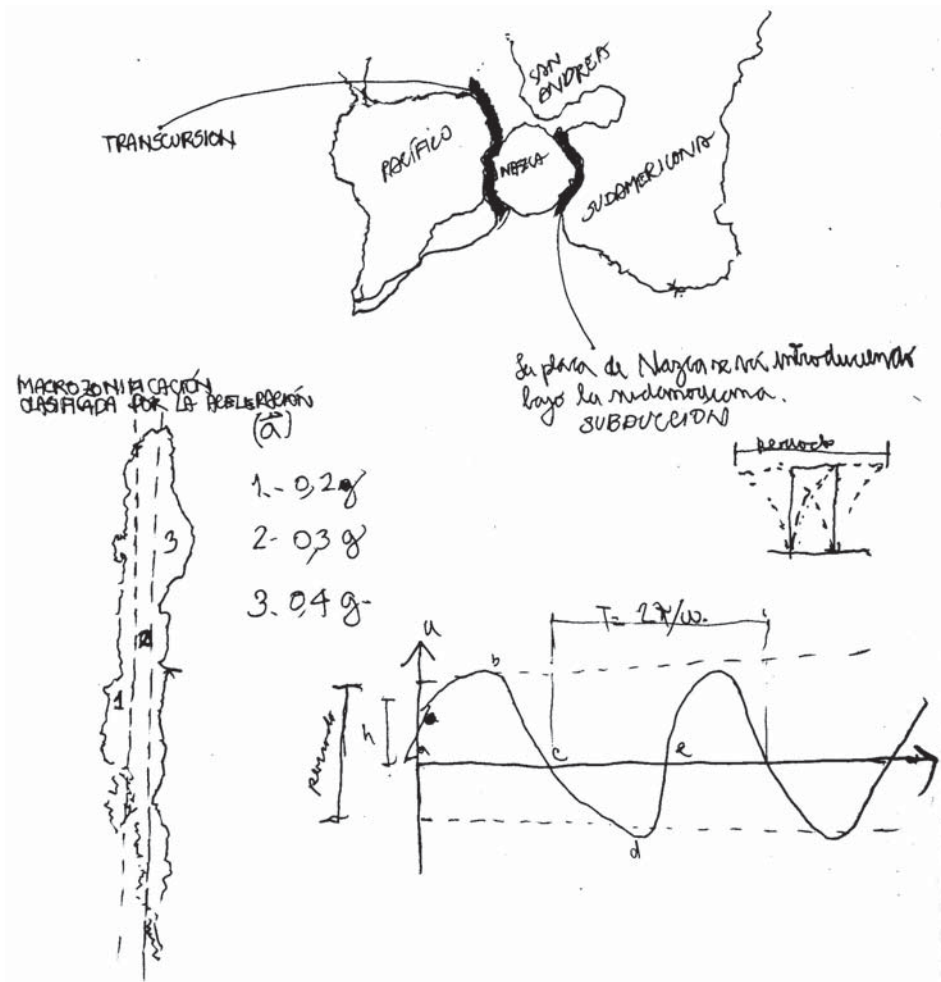 SAN
ANDREAS
TRANSCURSION
PACÍFICO
NAZCA
SUDAMERICANA
La placa de Nazca se vá introduciendo
bajo la sudamericana.
SUBDUCCION
MACROZONIFICACIÓN
CLASIFICADA POR LA ACELERACIÓN
(a)
1.- 0,2 g
2- 0,3 g
3. 0,4 g-
3
2
1
periodo
T= 2π/ω.
u
b
h
a
c
e
d